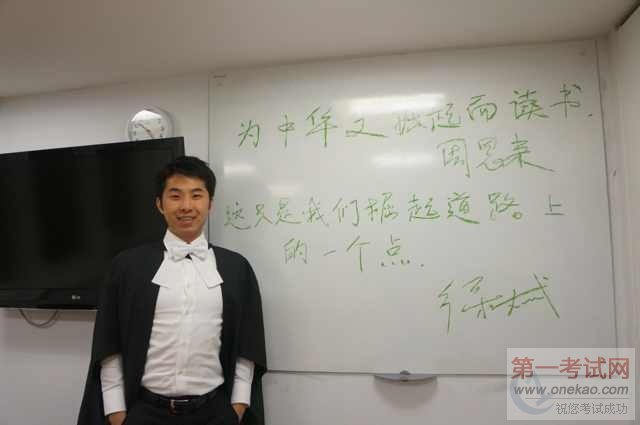 为中华之掘起而读书.
周恩来
这只是我们掘起道路上
的一个点.
LG
第一考试网
www.onekao.com
祝您考试成功